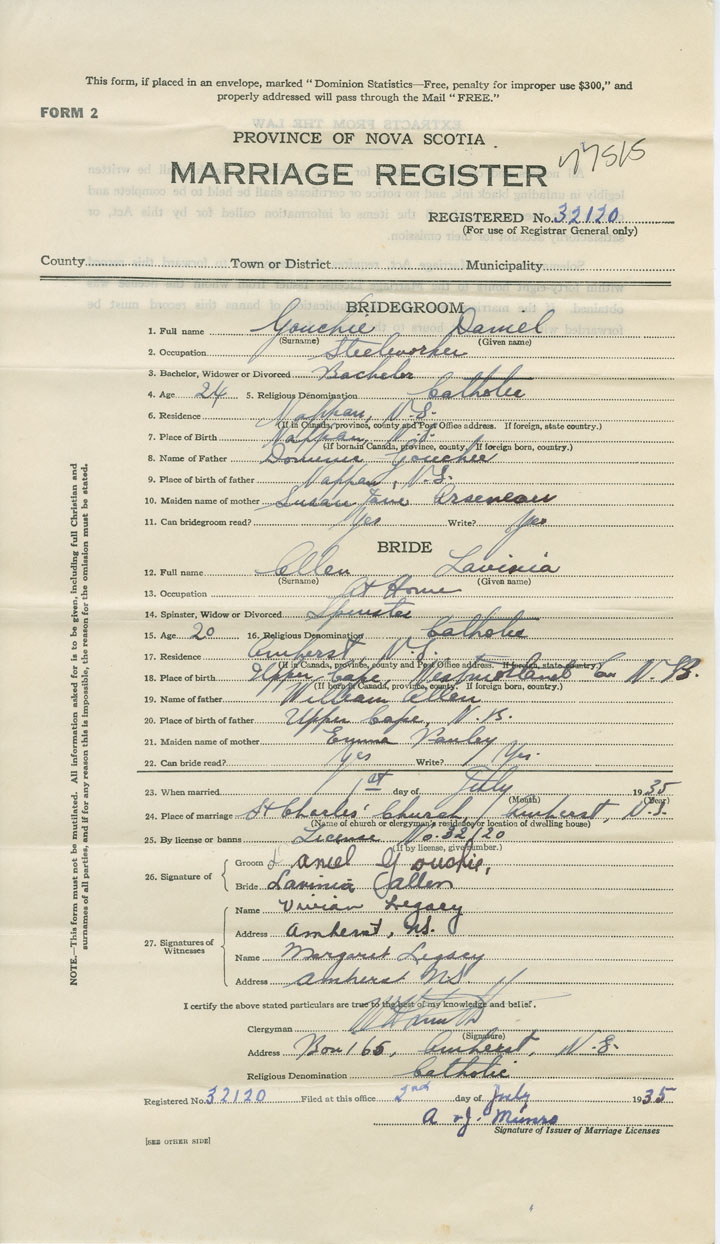 This form, if placed in an envelope, marked "Dominion Statistics—Free, penalty for improper use $300," and
properly addressed will pass through the Mail "FREE."
FORM 2
PROVINCE OF NOVA SCOTIA
MARRIAGE REGISTER
REGISTERED No. 32120
(For use of Registrar General only)
County Town or District Municipality
BRIDEGROOM
1. Full name Gouchie Daniel
(Surname) (Given name)
2. Occupation Steelworker
3. Bachelor, Widower or Divorced Bachelor
4. Age 24 5. Religious Denomination Catholic
6. Residence Nappan, N.S.
(If in Canada, province, county and Post Office address. If foreign, state country.)
7. Place of Birth Nappan, N.S.
(If born in Canada, province, county. If foreign born, country.)
8. Name of Father Dominic Gouchie
9. Place of birth of father Nappan, N.S.
10. Maiden name of mother Susan Jane Arseneau
11. Can bridegroom read? Yes Write? Yes
BRIDE
12. Full name Allen Lavinia
(Surname) (Given name)
13. Occupation At Home
14. Spinster, Widow or Divorced Spinster
15. Age 20 16. Religious Denomination Catholic
17. Residence Amherst, N.S.
(If in Canada, province, county and Post Office address. If foreign, state country.)
18. Place of Birth Upper Cape, Westmorland Co. N.B.
(If born in Canada, province, county. If foreign born, country.)
19. Name of father William Allen
20. Place of birth of father Upper Cape, N.B.
21. Maiden name of mother Emma
22. Can bride read? Yes Write? Yes.
23. When married 1st day of July 1935
(Month) (Year)
24. Place of marriage St Charles' Church, Amherst, N.S.
(Name of church or clergyman's residence or location of dwelling house)
25. By license or banns License No. 32120
(If by license, give number.)
26. Signature of
Groom Daniel Gouchie,
Bride Lavinia Allen
27. Signatures of Witnesses
Name Vivian Legacy
Address Amherst, N.S.
Name Margaret Legacy
Address Amherst N.S.
I certify the above stated particulars are true to the best of my knowledge and belief.
Clergyman
(Signature)
Address Box 165, Amherst, N.S.
Religious Denomination Catholic
Registered No. 32120 Filed at this office 2nd day of July 1935
A. J. Munro
Signature of Issuer of Marriage Licenses
[SEE OTHER SIDE]
NOTE.—This form must not be mutilated. All information asked for is to be given, including full Christian and
surnames of all parties, and if for any reason this is impossible, the reason for the omission must be stated.